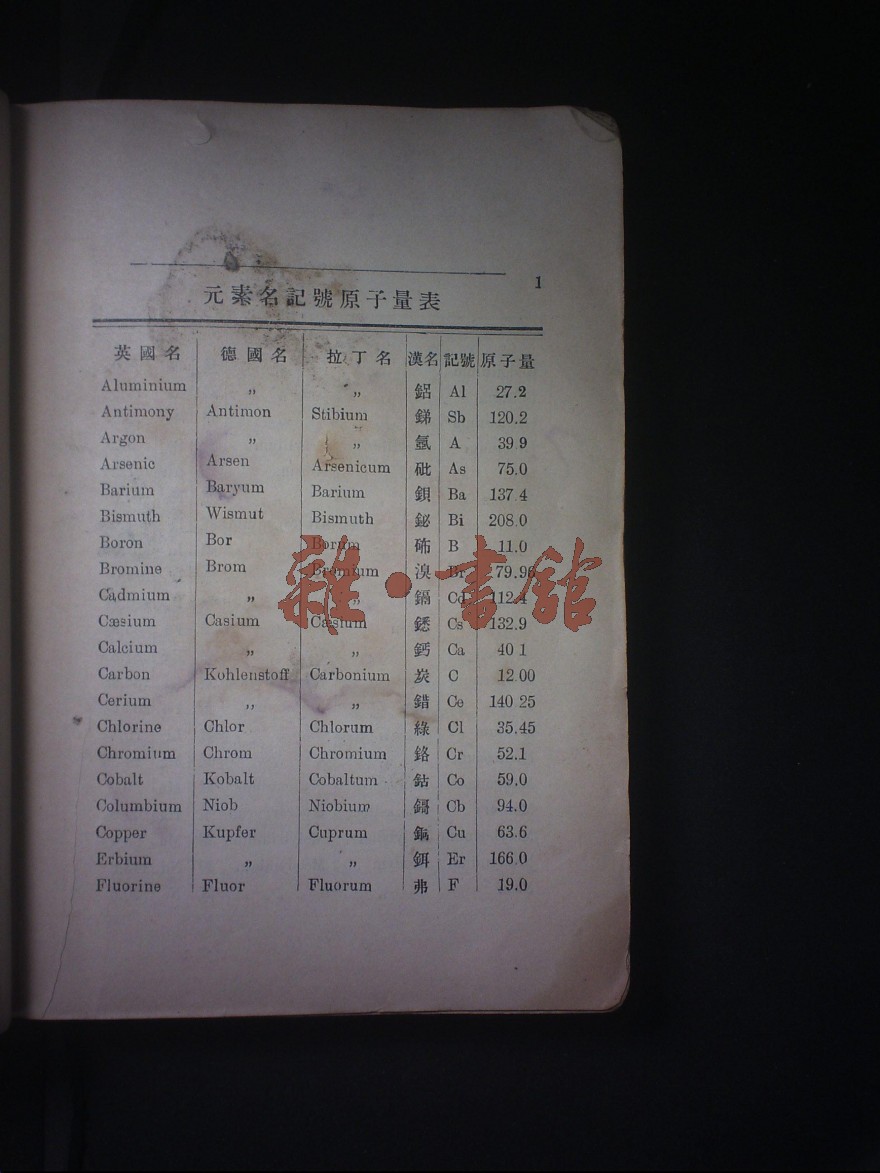 1
元素名記號原子量表
英國名 德國名 拉丁名 漢名 記號 原子量
Aluminium „ „ 鋁 Al 27.2
Antimony Antimon Stibium 銻 Sb 120.2
Argon „ „ 氬 A 39 9
Arsenic Arsen Arsenicum 砒 As 75.0
Barium Baryum Barium 鋇 Ba 137.4
Bismuth Wismut Bismuth 鉍 Bi 208.0
Boron Bor Borum 砩 B 11.0
Bromine Brom Bromium 溴 Br 79.96
Cadmium „ „ 鎘 Cd 112.4
Cæsium Casium Cæsium Cs 132.9
Calcium „ „ 鈣 Ca 40 1
Carbon Kohlenstoff Carbonium 炭 C 12.00
Cerium „ „ 錯 Ce 140 25
Chlorine Chlor Chlorum 綠 Cl 35.45
Chromium Chrom Chromium 鉻 Cr 52.1
Cobalt Kobalt Cobaltum 鈷 Co 59.0
Columbium Niob Niobium Cb 94.0
Copper Kupfer Cuprum Cu 63.6
Erbium „ „ 鉺 Er 166.0
Fluorine Fluor Fluorum 弗 F 19.0
雜·書館